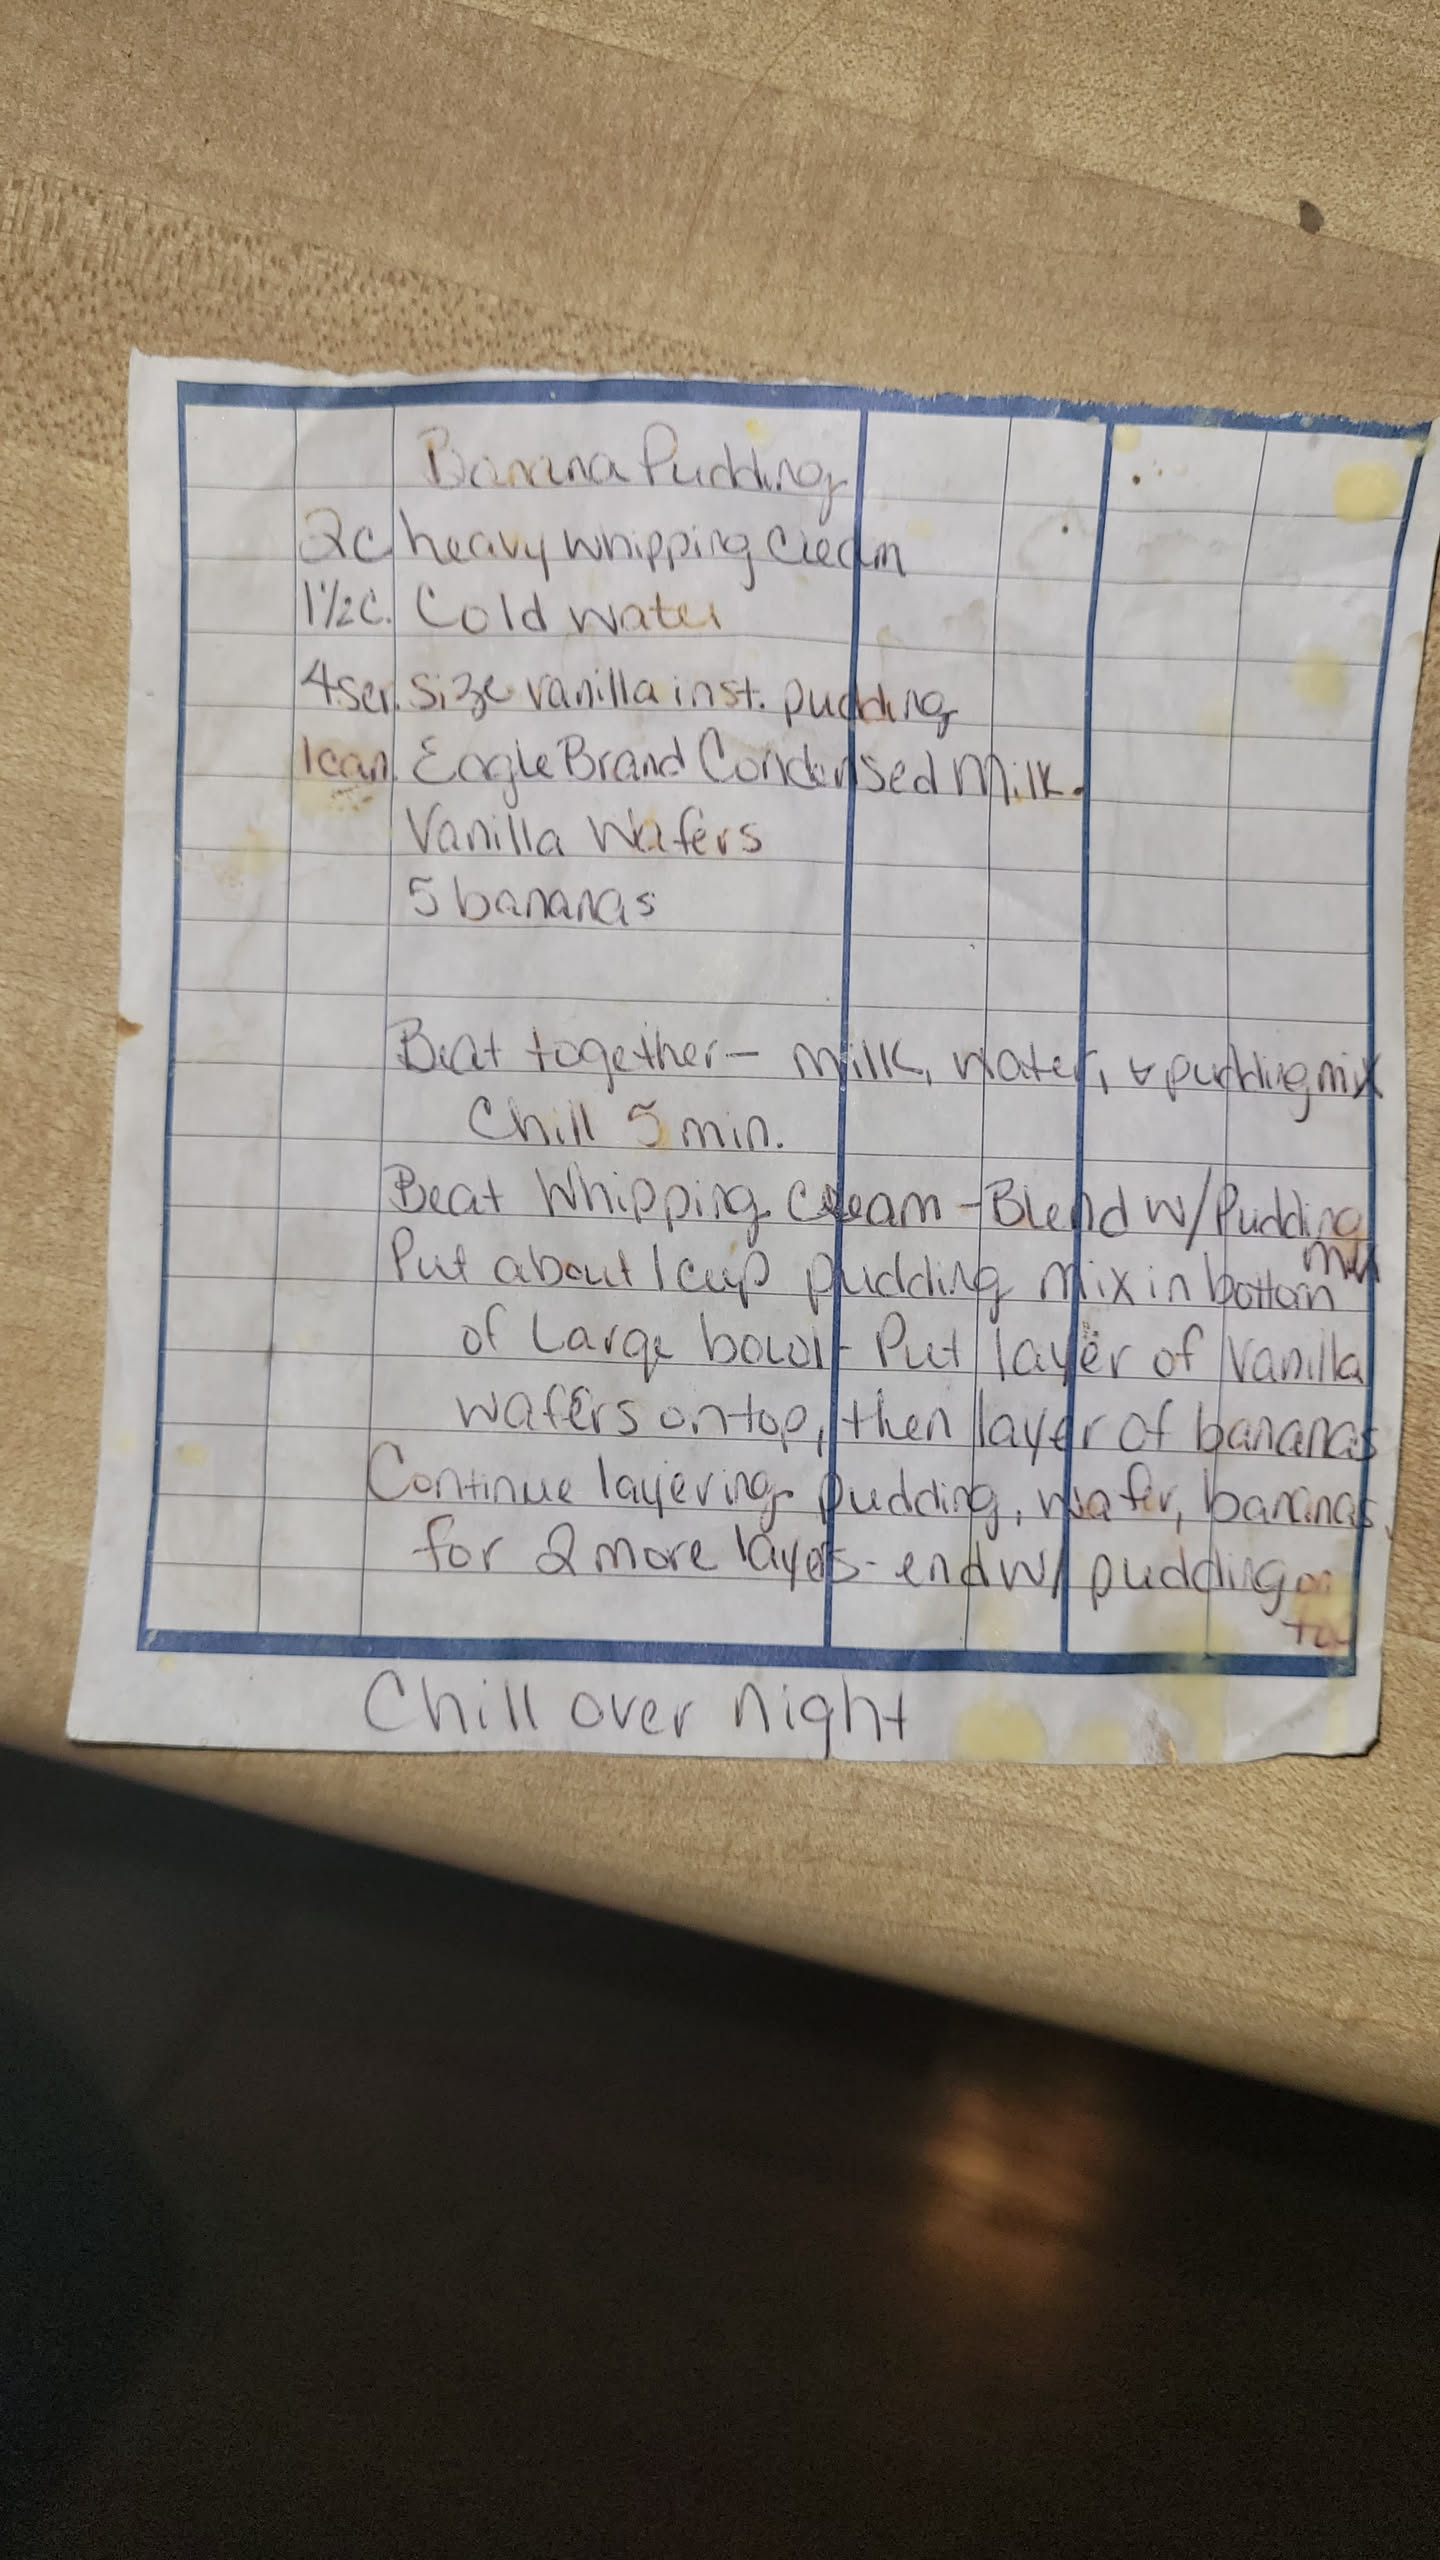 Banana Pudding
2c heavy whipping cream
1½c. Cold water
4ser. size vanilla inst. pudding
1can. Eagle Brand Condensed Milk.
Vanilla Wafers
5 bananas
Beat together - milk, water, & pudding mix
Chill 5 min.
Beat Whipping cream - Blend w/Pudding
mix
Put about 1 cup pudding mix in bottom
of Large bowl - Put layer of Vanilla
wafers on top, then layer of bananas
Continue layering pudding, wafer, bananas,
for 2 more layers - end w/ pudding on
top
Chill over night